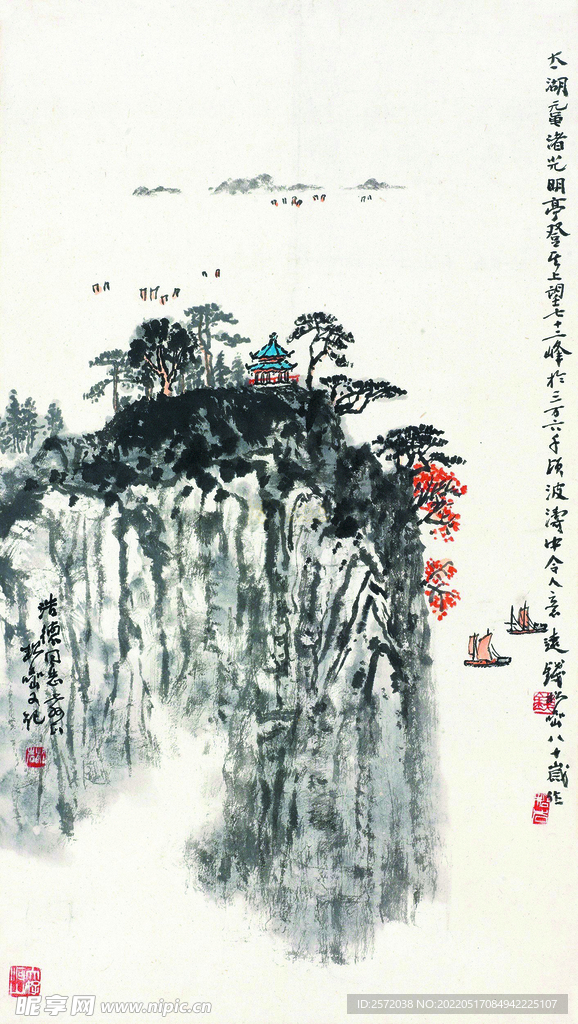 太湖黿渚光明亭登其上望七十二峰於三万六千顷波濤中令人意遠錢松嵒八十歲作
浩德同志
松嵒又记
大好河山
昵享网 www.nipic.cn
ID:2572038 NO:20220517084942225107